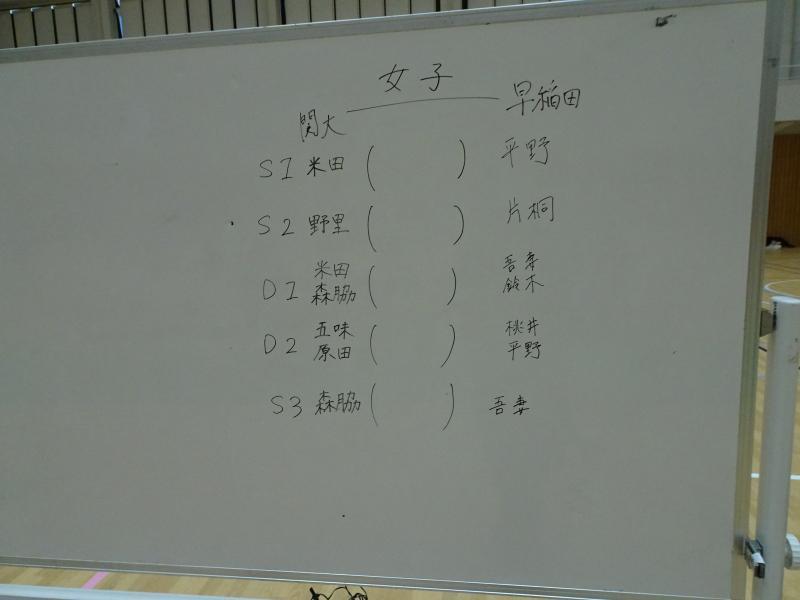 女子
関大 早稲田
S1 米田 ( ) 平野
S2 野里 ( ) 片桐
D1 米田 森脇 ( ) 吾妻 鈴木
D2 五味 原田 ( ) 桃井 平野
S3 森脇 ( ) 吾妻